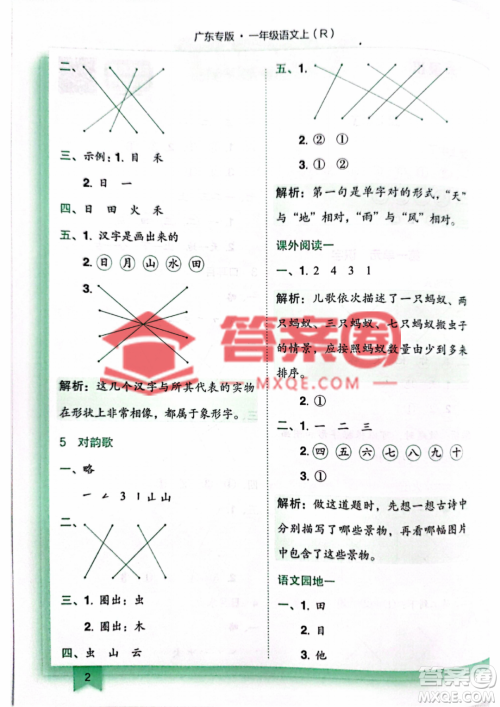 广东专版·一年级语文上（R）
二、
三、示例：1. 目　禾
2. 日　一
四、日　田　火　禾
五、1. 汉字是画出来的
2. 日　月　山　水　田
3.
解析：这几个汉字与所其代表的实物
在形状上非常相像，都属于象形字。
5　对韵歌
一、略
二、
三、1. 圈出：虫
2. 圈出：木
四、虫　山　云
五、1.
2. ②　①
3. ①　①
解析：第一句是单字对的形式，“天”
与“地”相对，“雨”与“风”相对。
课外阅读一
一、1. 2　4　3　1
解析：儿歌依次描述了一只蚂蚁、两
只蚂蚁、三只蚂蚁、七只蚂蚁搬虫子
的情景，应按照蚂蚁数量由少到多来
排序。
2. ①
二、1. 一　二　三
2. 四　五　六　七　八　九　十
3. ①
解析：做这道题时，先想一想古诗中
分别描写了哪些景物，再看哪幅图片
包含了这些景物。
语文园地一
一、1. 田
2. 目
3. 他
2
答案圈
MXQE.COM
答案圈
MXQE.COM